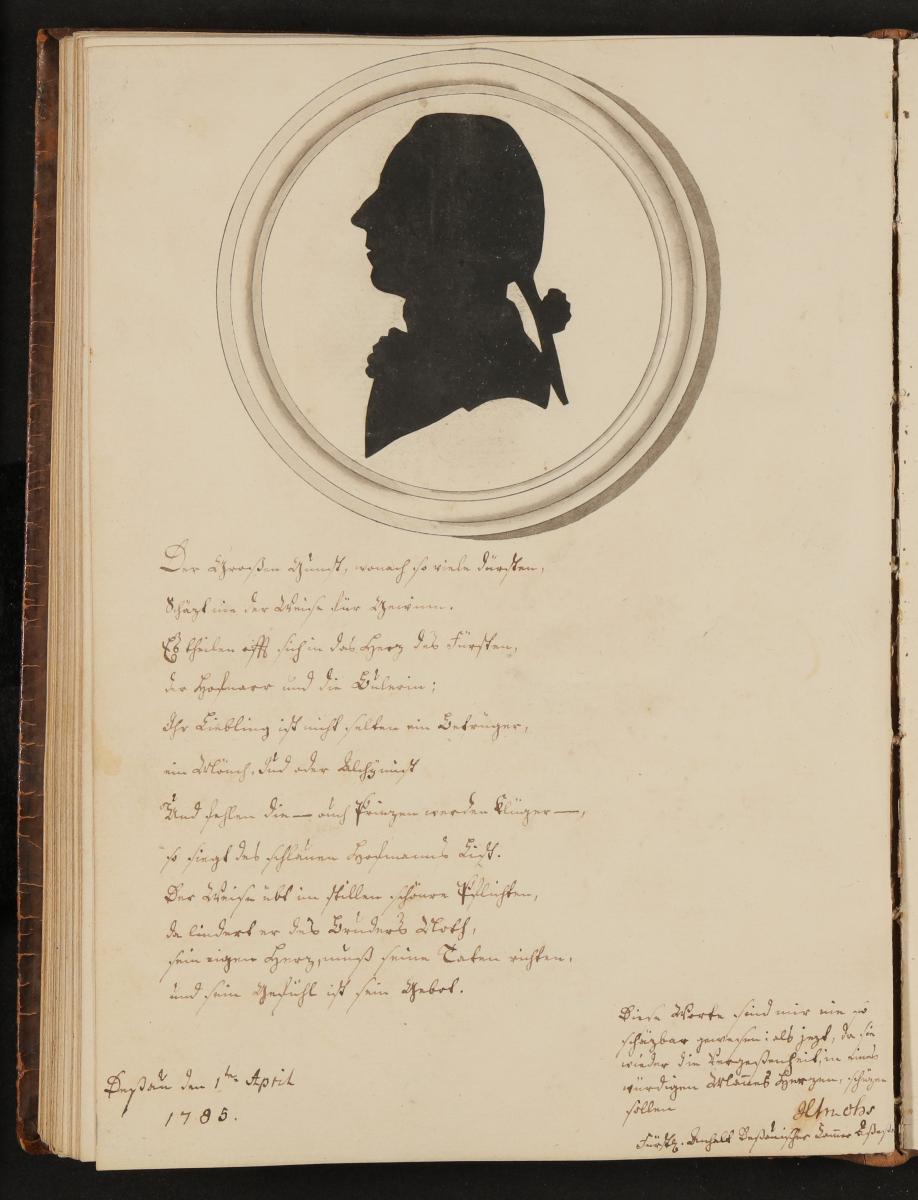 Der Großen Gunst, wonach so viele dürsten,
Schäzt nie der Weise für Gewinn.
Es theilen offt sich in das Herz des Fürsten,
der Hofnarr und die Bulerin;
Ihr Liebling ist nicht selten ein Betrüger,
ein Mönch, Jud oder Alchymist
Und fehlen die — auch Prinzen werden klüger —,
so siegt des schlauen Hofmanns List.
Der Weise übt im stillen schönre Pflichten,
da lindert er des Bruders Noth,
sein eigen Herz, muß seine Taten richten,
und sein Gefühl ist sein Gebot.
Diese Worte sind mir nie so
schäzbar gewesen: als jezt, da sie
wieder die Vergeßenheit, in eines
würdigen Mannes Herzen, schüzen
sollen
Deßau den 1ten April
1785.
Fürstl. Anhalt Deßauischer Cammer